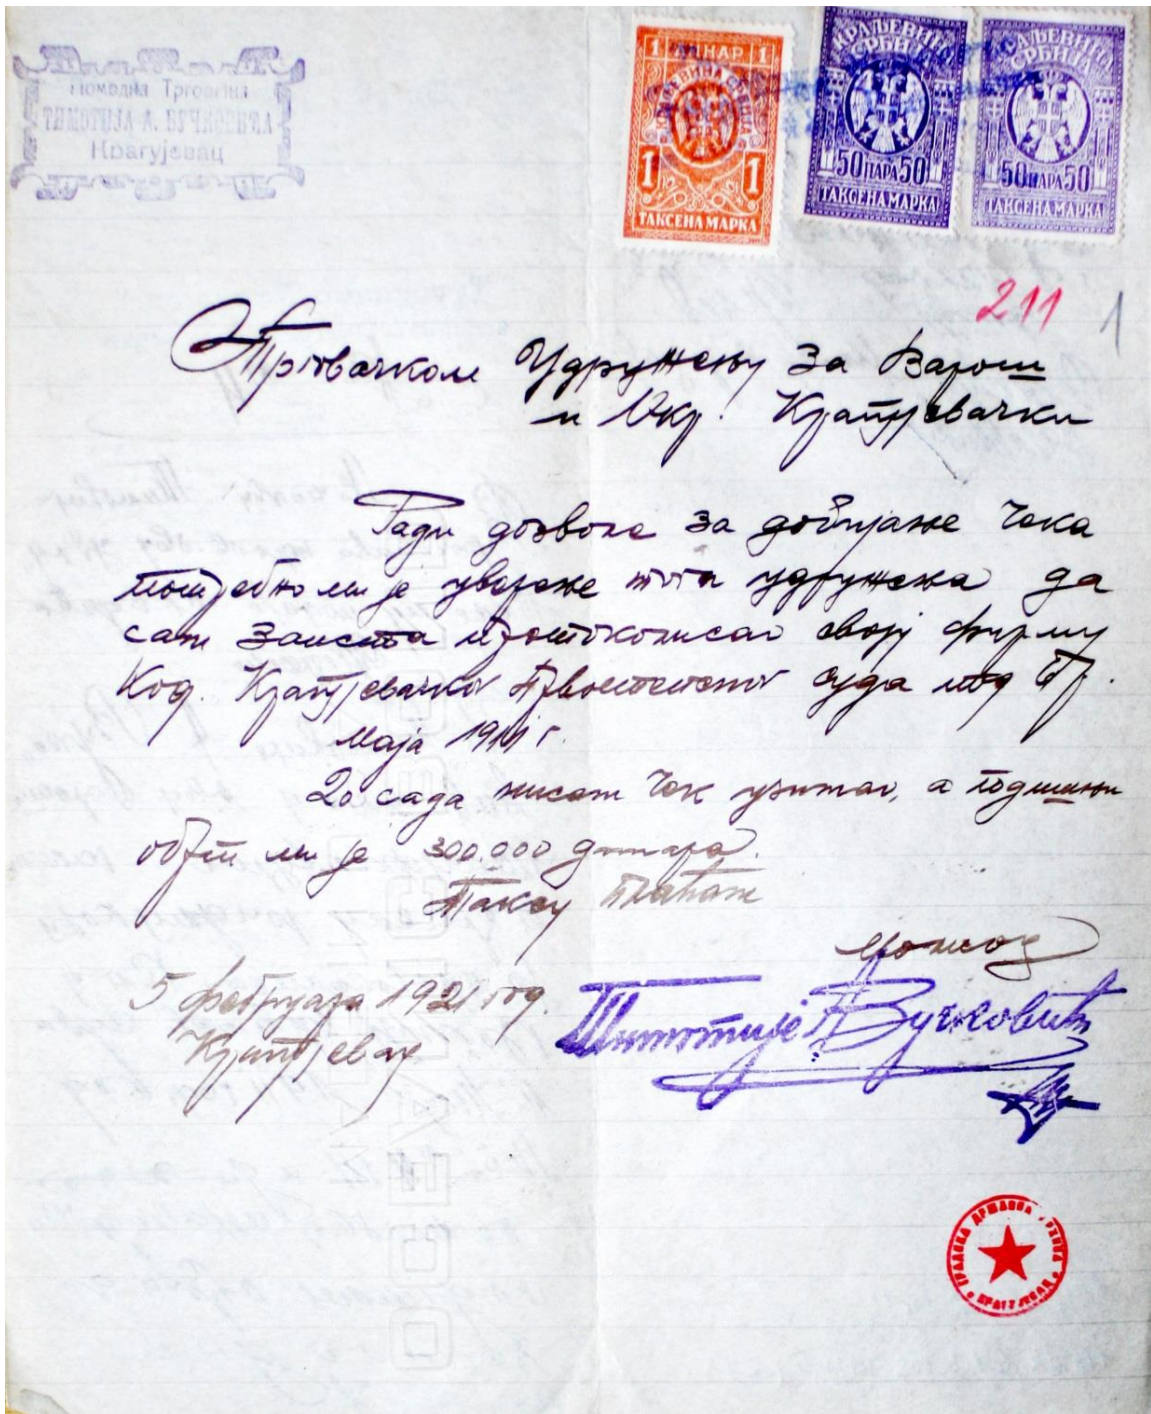 Помодна Трговина
ТИМОТИЈА А. ВУЧКОВИЋА
Крагујевац
1 ДИНАР 1
КРАЉЕВИНА СРБИЈА
1 1
ТАКСЕНА МАРКА
КРАЉЕВИНА
СРБИЈА
50 ПАРА 50
ТАКСЕНА МАРКА
КРАЉЕВИНА
СРБИЈА
50 ПАРА 50
ТАКСЕНА МАРКА
211 1
Трговачком Удружењу за Варош
и Окр. Крагујевачки
Ради дозвола за добијање Чека
потребно ми је уверење тога удружења да
сам заиста протоколисао своју фирму
Код. Крагујевачког Првостепеног суда под Бр.
Маја 1911 г.
До сада нисам Чек узимао, а годишњи
обрт ми је 300.000 динара.
Таксу плаћам
5 фебруара 1921 год.
Крагујевац
Тимотије А. Вучковић
ГРАДСКА ДРЖАВНА АРХИВА
КРАГУЈЕВАЦ